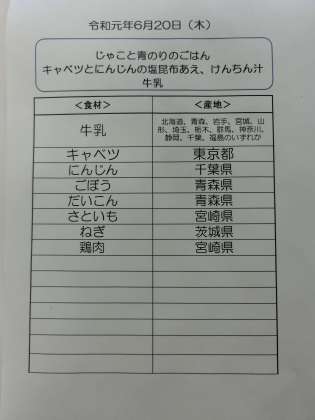 令和元年6月20日(木)
じゃこと青のりのごはん
キャベツとにんじんの塩昆布あえ、けんちん汁
牛乳
<食材> <産地>
牛乳 北海道、青森、岩手、宮城、山
形、埼玉、栃木、群馬、神奈川、
静岡、千葉、福島のいずれか
キャベツ 東京都
にんじん 千葉県
ごぼう 青森県
だいこん 青森県
さといも 宮崎県
ねぎ 茨城県
鶏肉 宮崎県